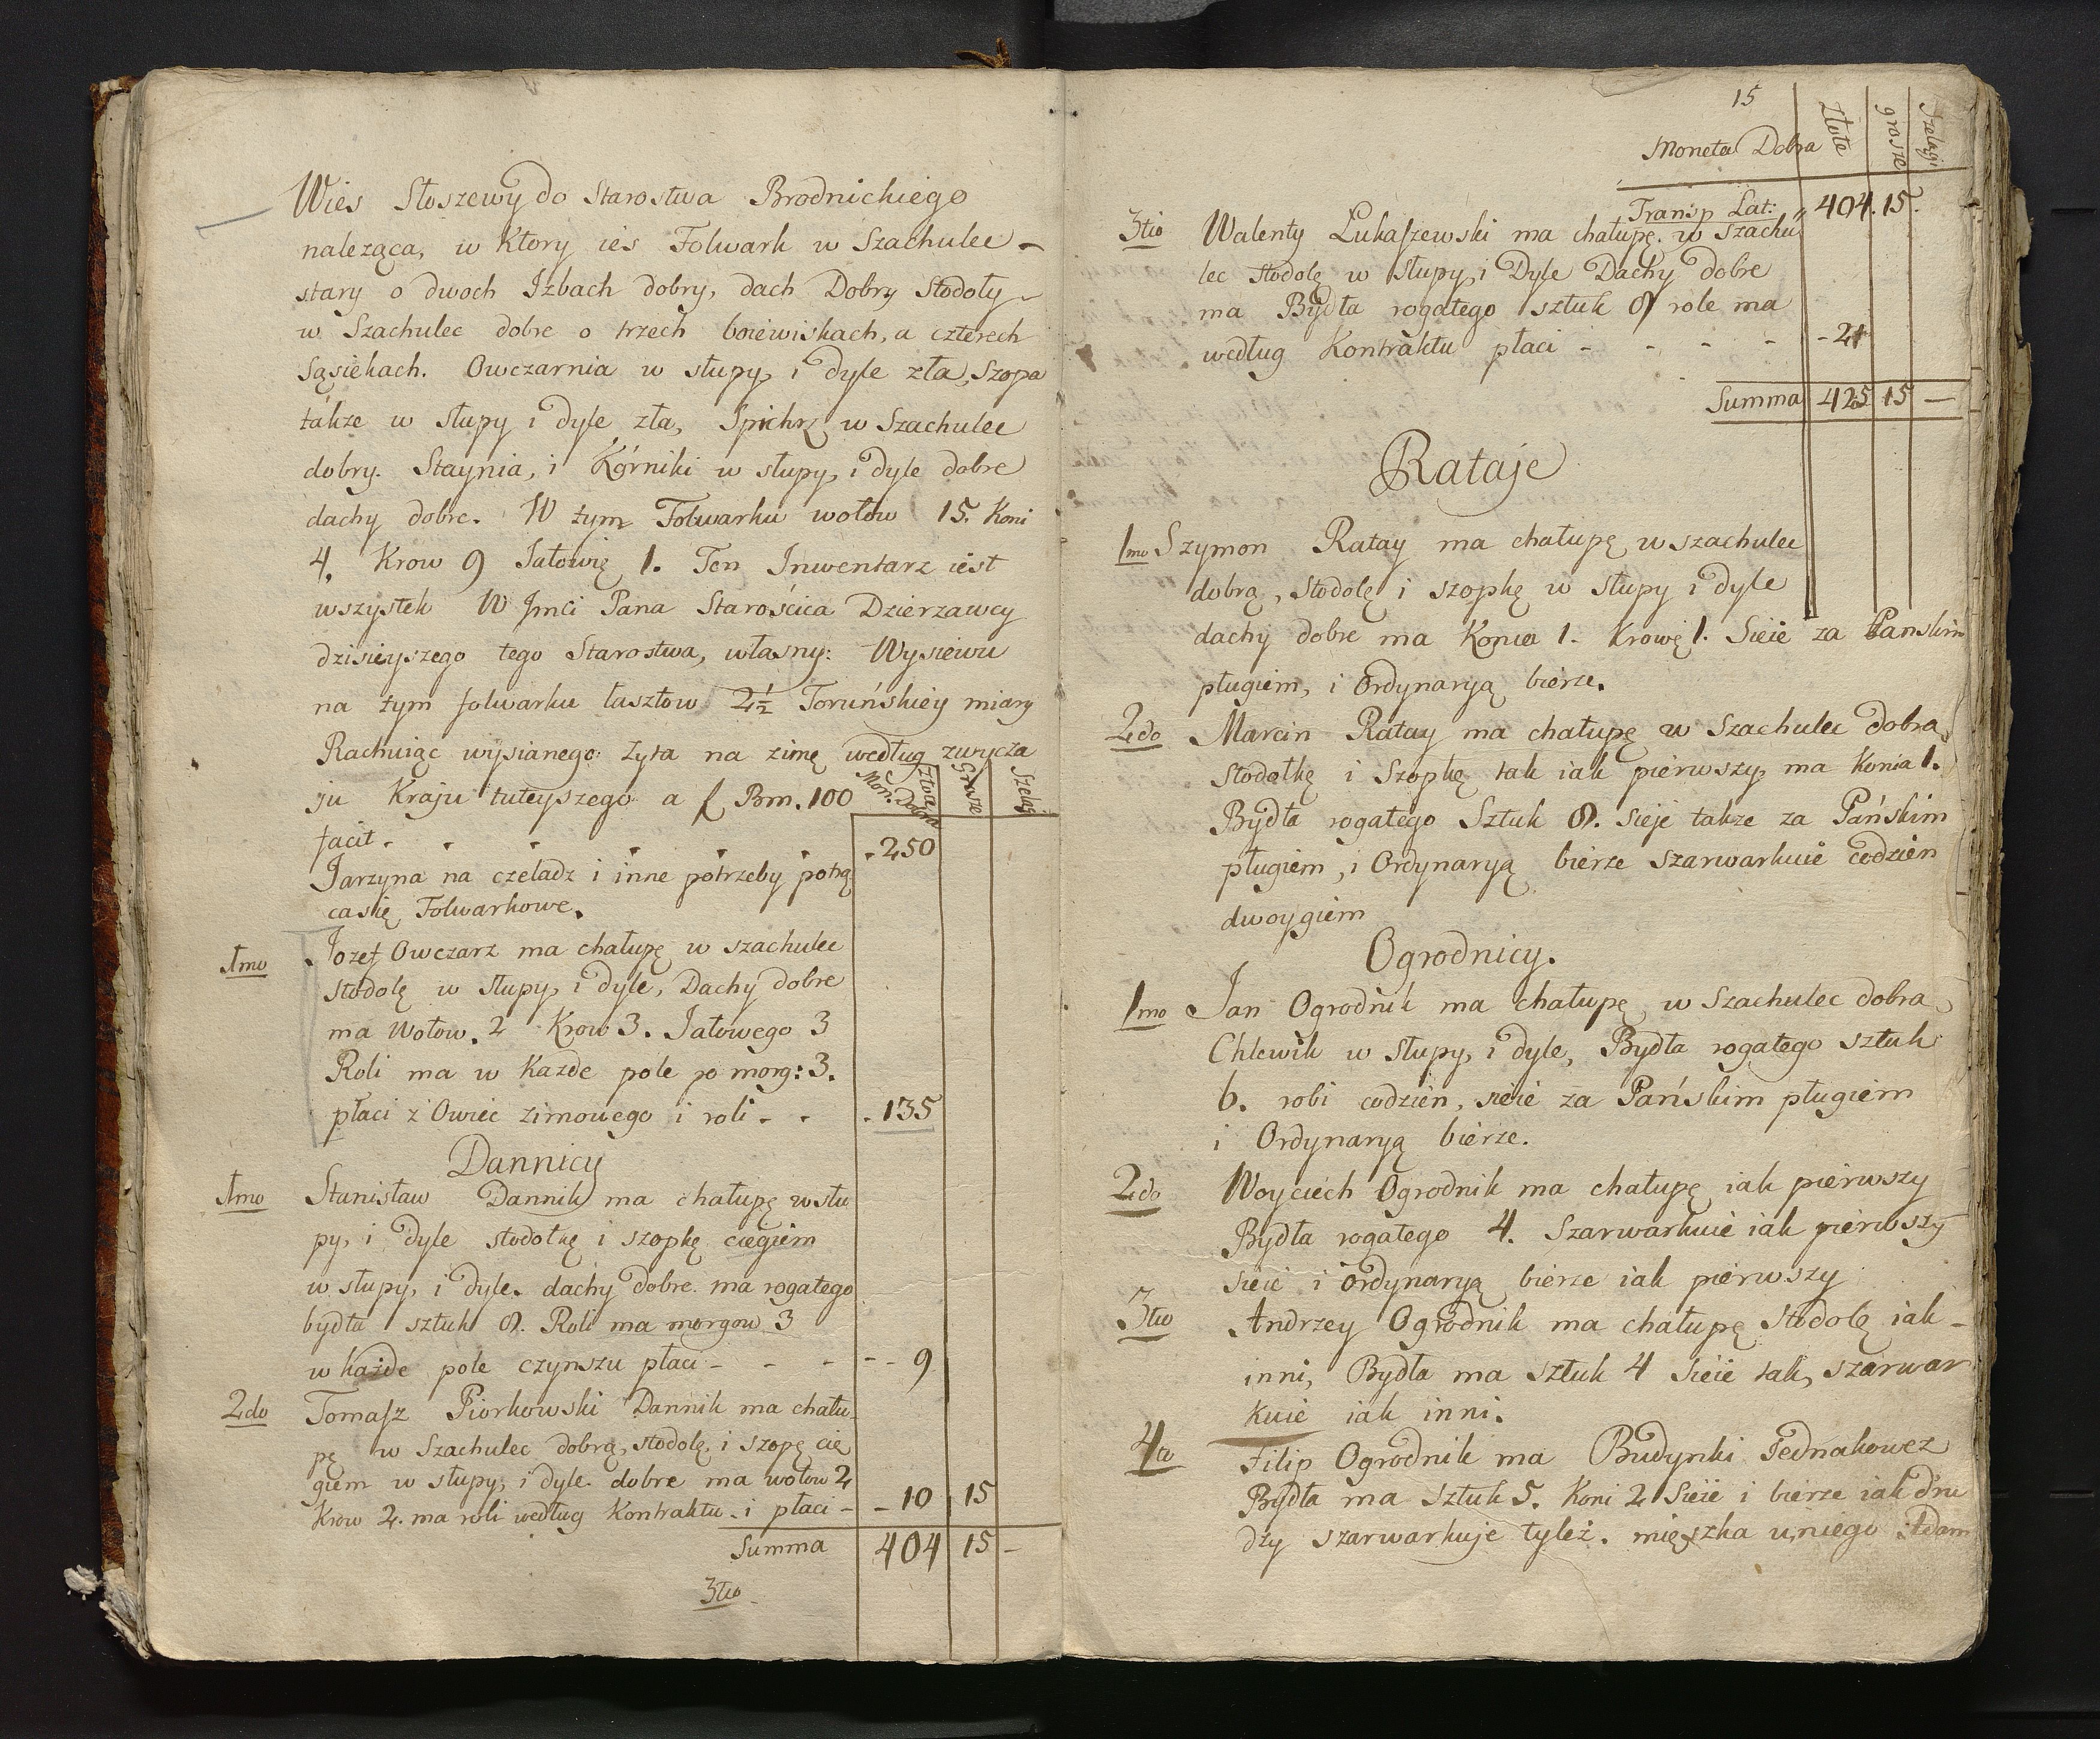 Wies Słoszewy do Starostwa Brodnickiego
nalezącą, w Ktory ies Folwark w Szachulec -
stary o dwoch Izbach dobry, dach Dobry Stodoły
w Szachulec dobre o trzech boiewiskach, a czterech
Sąsiekach. Owczarnia w słupy, i dyle zła, Szopa
także w słupy i dyle zła, Spichrz w Szachulec
dobry. Staynia, i Kórniki w słupy, i dyle dobre
dachy dobre. W tym Folwarku wołow 15. Koni
4. Krow 9 Jałowię 1. Ten Inwentarz iest
wszystek W Jmci Pana Starościca Dzierzawcy
dzisieyszego tego Starostwa, własny: Wysiewu
na tym folwarku łasztow 2½ Toruńskiéy miary
Rachuiąc wysianego żyta na zimę według zwycza
ju Kraju tuteyszego a f Bm. 100
Mon. Dobra
złota
Grosze
Szeląg
facit . . . . . . 250
Jarzyna na czeladz i inne potrzeby potrą
ca się Folwarkowe.
1mo Jozef Owczarz ma chałupę w szachulec
stodolę w słupy, i dyle, Dachy dobre
ma Wołow. 2 Krow 3. Jałowego 3
Roli ma w Kazde pole po morg: 3.
płaci z Owiec zimowego i roli - - . 135
Dannicy
1mo Stanisław Dannik ma chałupę w słu
py, i dyle stodołkę i szopkę ciegiem
w słupy, i dyle. dachy dobre. ma rogatego
bydła sztuk 8. Roli ma morgow 3
w każde pole czynszu płaci - - - - - 9
2do Tomasz Piorkowski Dannik ma chału
pę w Szachulec dobrą, stodolę, i szopę cię
giem w słupy, i dyle dobre ma wołow 2
Krow 2. ma roli według Kontraktu. i płaci - - 10 15
Summa 404 15 -
3tio
15
Moneta Dobra Złote grosze Szelągi
Transp Lat: " 404. 15.
3tio Walenty Lukaszewski ma chałupę. w Szachu
lec Stodolę w słupy, i Dyle Dachy dobre
ma Bydła rogatego sztuk 8 role ma
według Kontraktu płaci - - - - - 21
Summa 425 15 -
Rataje
1mo Szymon Ratay ma chałupę w szachulec
dobrą, Stodolę i szopkę w słupy i dyle
dachy dobre ma Konia 1. Krowę 1. Sieie za Panskim
pługiem, i Ordynaryą bierze.
2do Marcin Ratay ma chałupę w Szachulec dobra
Stodołkę i Szopkę tak iak pierwszy, ma Konia 1.
Bydła rogatego Sztuk 8. Sieje takze za Pańskim
pługiem, i Ordynaryą bierze szarwarkuie codzien
dwoygiem
Ogrodnicy.
1mo Jan Ogrodnik ma chałupę w Szachulec dobra
Chlewik w słupy, i dyle, Bydła rogatego sztuk
6. robi codzien, sieie za Pańskim pługiem
i Ordynaryą bierze.
2do Woyciech Ogrodnik ma chałupę iak pierwszy
Bydła rogatego 4. Szarwarkuie iak pierwszy
sieie i ordynaryą bierze iak pierwszy
3tio Andrzey Ogrodnik ma chałupę Stodolę iak -
inni, Bydła ma sztuk 4 Sieie tak, szarwar
kuie iak inni.
4to Filip Ogrodnik ma Budynki Jednakowez
Bydła ma sztuk 5. Koni 2 Sieie i bierze iak dru
dzy szarwarkuje tyleż. mięszka u niego Adam